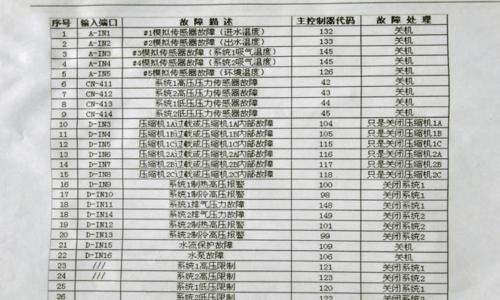 序号 输入端口 故障描述 主控制器代码 故障处理
1 A-IN1 #1模拟传感器故障(进水温度) 132 关机
2 A-IN2 #2模拟传感器故障(出水温度) 133 关机
3 A-IN3 #3模拟传感器故障(系统1吸气温度) 145 关机
4 A-IN4 #4模拟传感器故障(系统2吸气温度) 145 关机
5 A-IN5 #5模拟传感器故障(环境温度) 126 关机
6 CN-411 系统1高压压力传感器故障 42 关机
7 CN-412 系统2高压压力传感器故障 43 关机
8 CN-413 系统1低压压力传感器故障 44 关机
9 CN-414 系统2低压压力传感器故障 45 关机
10 D-IN3 压缩机1A过载或压缩机1A内部故障 104 只是关闭压缩机1A
11 D-IN4 压缩机1B过载或压缩机1B内部故障 105 只是关闭压缩机1B
12 D-IN5 压缩机1C过载或压缩机1C内部故障 115 只是关闭压缩机1C
13 D-IN6 压缩机2A过载或压缩机2A内部故障 116 只是关闭压缩机2A
14 D-IN7 压缩机2B过载或压缩机2B内部故障 117 只是关闭压缩机2B
15 D-IN8 压缩机2C过载或压缩机2C内部故障 118 只是关闭压缩机2C
16 D-IN9 系统1制热高压报警 100 关闭系统1
17 D-IN10 系统1制冷高压报警 98 关闭系统1
18 D-IN11 系统1排气压力故障 148 关闭系统1
19 D-IN11 系统2排气压力故障 149 关闭系统2
19 D-IN12 系统2制热高压报警 101 关闭系统2
20 D-IN13 系统2制冷高压报警 99 关闭系统2
21 D-IN15 水流保护故障 109 关机
22 D-IN16 水泵故障 106 关机
23 /// 系统1高压限制 121 关闭系统1
24 /// 系统2高压限制 123 关闭系统2
25 系统1低压限制 120 关闭系统1
26 122